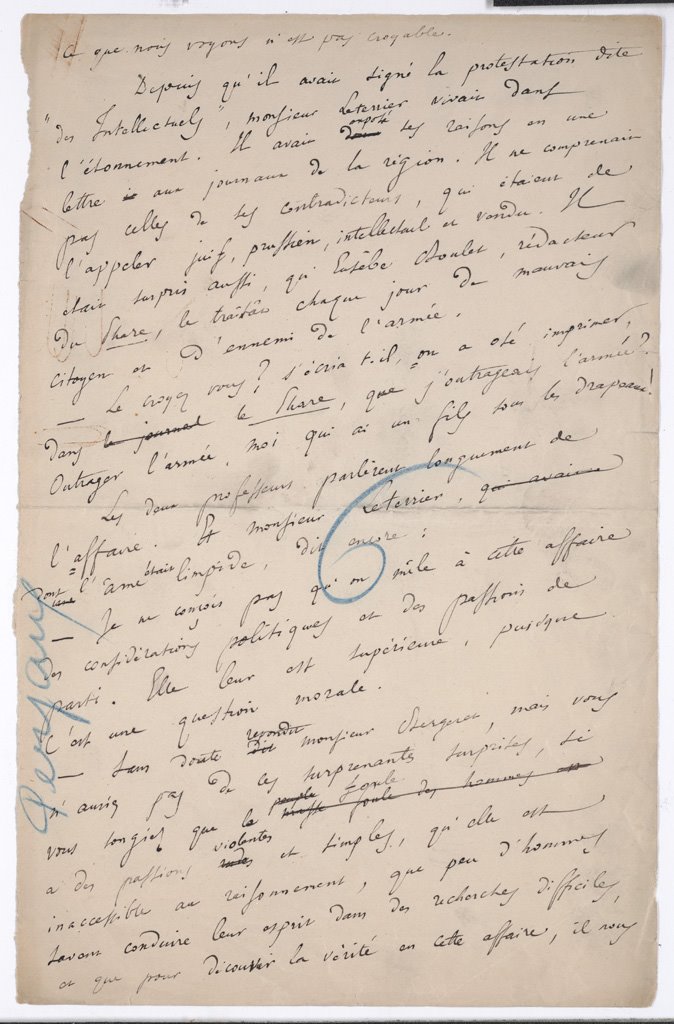 ce que nous voyons n'est pas croyable.
Depuis qu'il avait signé la protestation dite
"des Intellectuels", monsieur Leterrier vivait dans
l'étonnement. Il avait exposé ses raisons en une
lettre aux journaux de la région. Il ne comprenait
pas celles de ses contradicteurs, qui étaient de
l'appeler juif, prussien, intellectuel et vendu. Il
était surpris aussi, qu'Eusèbe Boulet, rédacteur
du Phare, le traitât chaque jour de mauvais
citoyen et d'ennemi de l'armée.
— Le croyez vous? s'écria t-il, on a osé imprimer,
dans le journal le Phare, que j'outrageais l'armée?
Outrager l'armée, moi qui ai un fils sous les drapeaux!
Les deux professeurs parlèrent longuement de
l'affaire. Et monsieur Leterrier, qui avait
dont l'âme était limpide, dit encore:
— Je ne conçois pas qu'on mêle à cette affaire
des considérations politiques et des passions de
parti. Elle leur est supérieure, puisque
c'est une question morale.
— Sans doute repondit dit monsieur Bergeret, mais vous
n'auriez pas de ces surprenantes surprises, si
vous songiez que le peuple foule foule des hommes
a des passions violentes et simples, qu'elle est
inaccessible au raisonnement, que peu d'hommes
savent conduire leur esprit dans des recherches difficiles,
et que pour découvrir la vérité en cette affaire, il nous
6